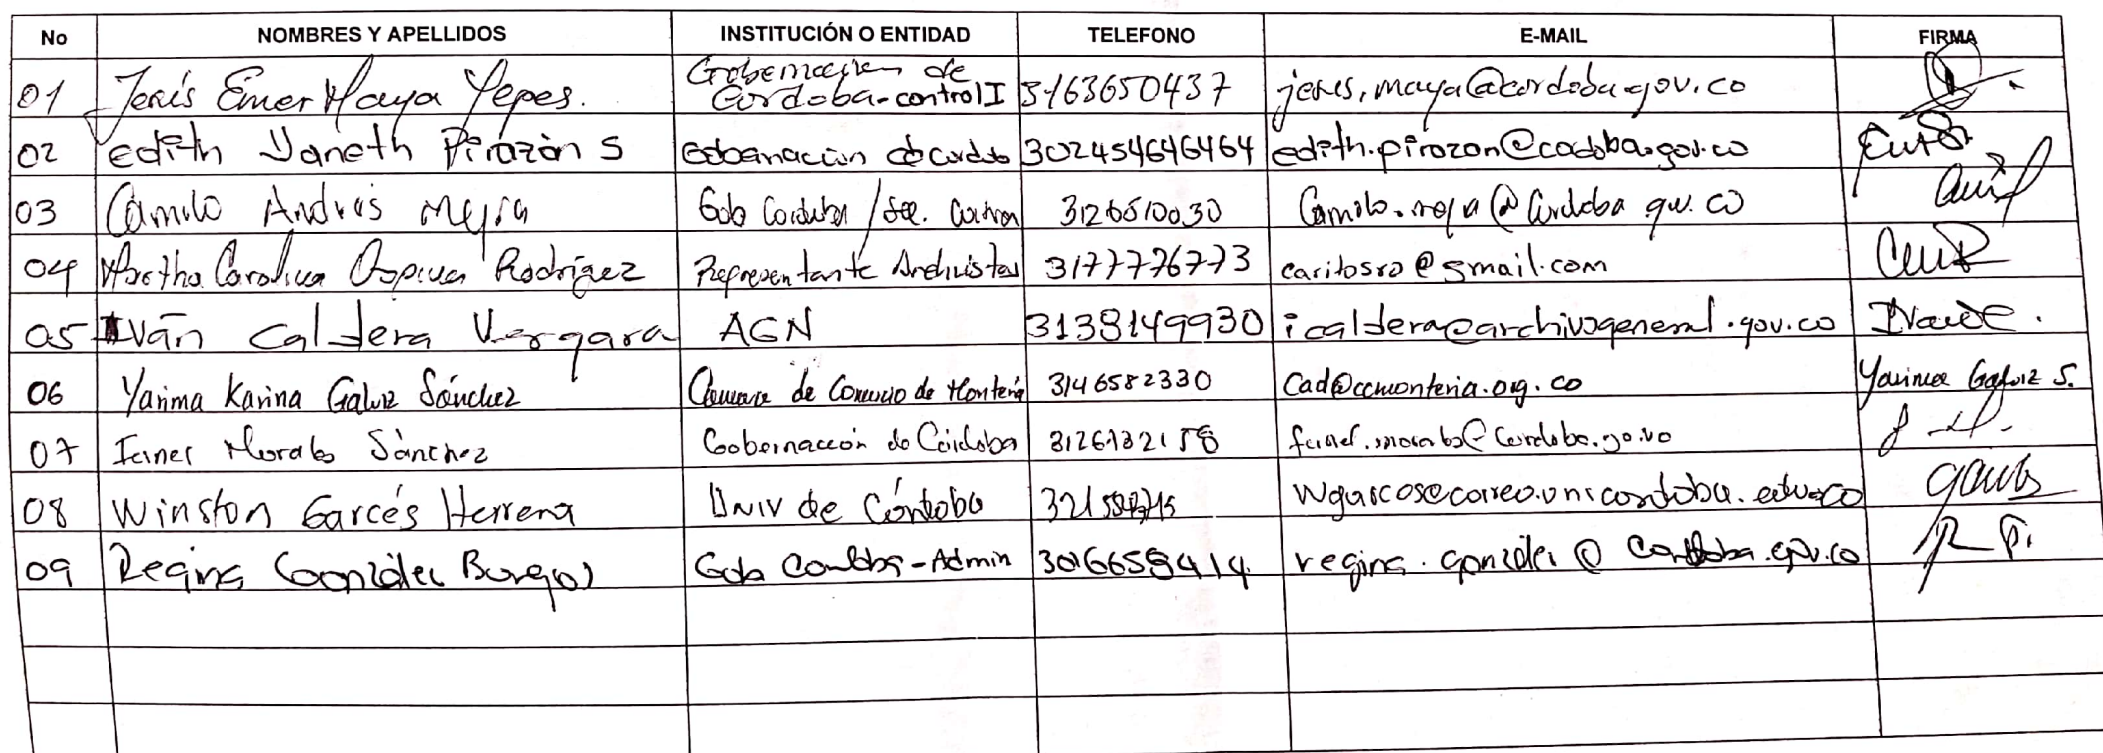 No NOMBRES Y APELLIDOS INSTITUCIÓN O ENTIDAD TELEFONO E-MAIL FIRMA
01 Jesús Emer Maya Yepes. Gobernación de Córdoba-control I 3163650437 jesus.maya@cordoba.gov.co
02 edith Yaneth Pirazán S Gobernación de Cordoba 302454646464 edith.pirozon@cordoba.gov.co
03 Camilo Andrés Mejía Gob Cordoba / Sec. 3126510030 Camilo.mejia@Cordoba.gov.co
04 Martha Carolina Ospina Rodríguez Representante Archivistas 3177776773 caritosro@gmail.com
05 Iván Caldera Vergara AGN 3138149930 icaldera@archivogeneral.gov.co
06 Yarima Karina Galviz Sánchez Cámara de Comercio de Montería 3146582330 Cad@ccmonteria.org.co Yarima Galviz S.
07 Morales Sánchez Gobernación de Córdoba
08 Winston Garcés Herrera Univ de Córdoba wgarces@correo.unicordoba.edu.co
09 Regina González Burgos Gob Cordoba-Admin 3016659414 regina.gonzález@Cordoba.gov.co